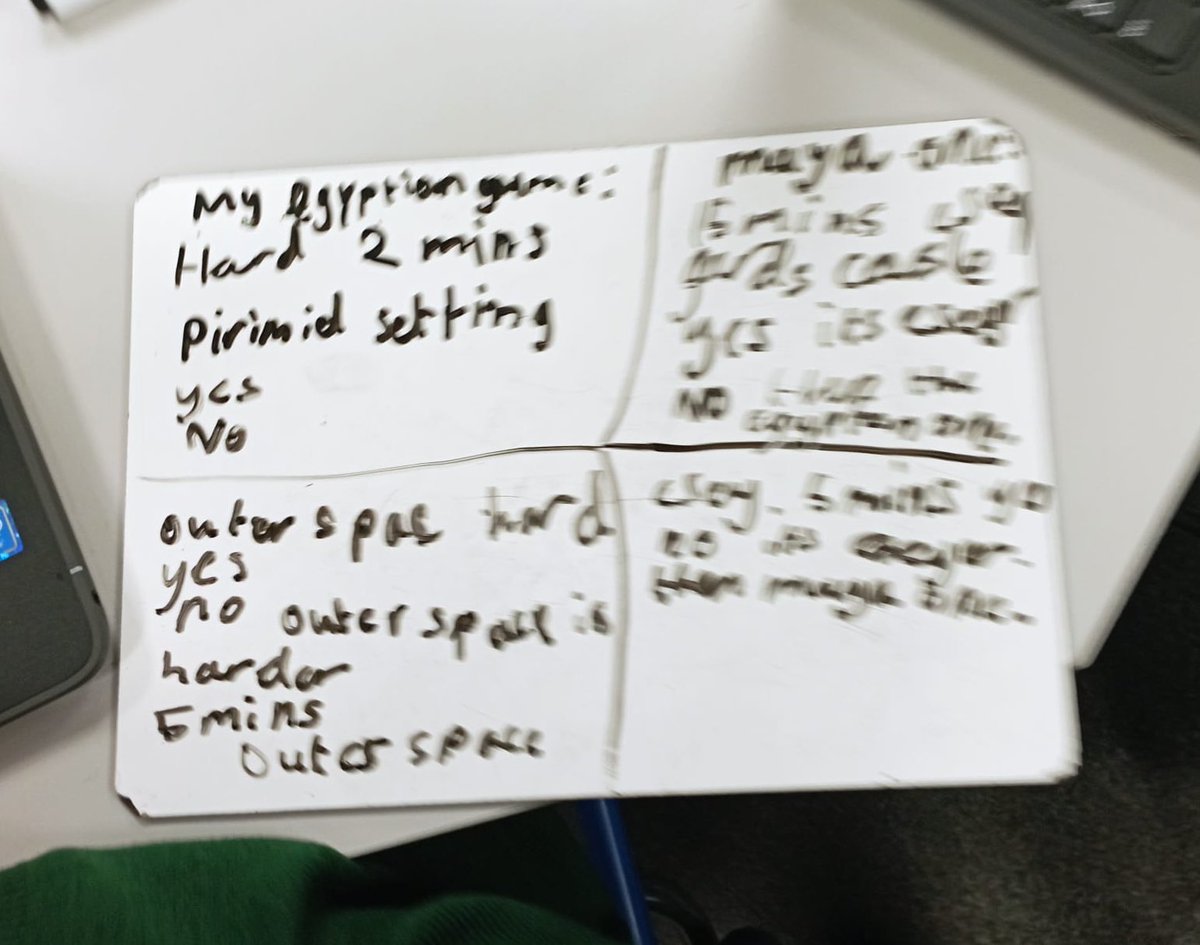 My Egyption game:
Hard 2 mins
pirimid setting
yes
No
maya
15 mins
casle
yes its
No the
egyption one.
outer spac hard
yes
no outer space is
harder
5 mins
outer space
esey. 5 mins
no its
then one.